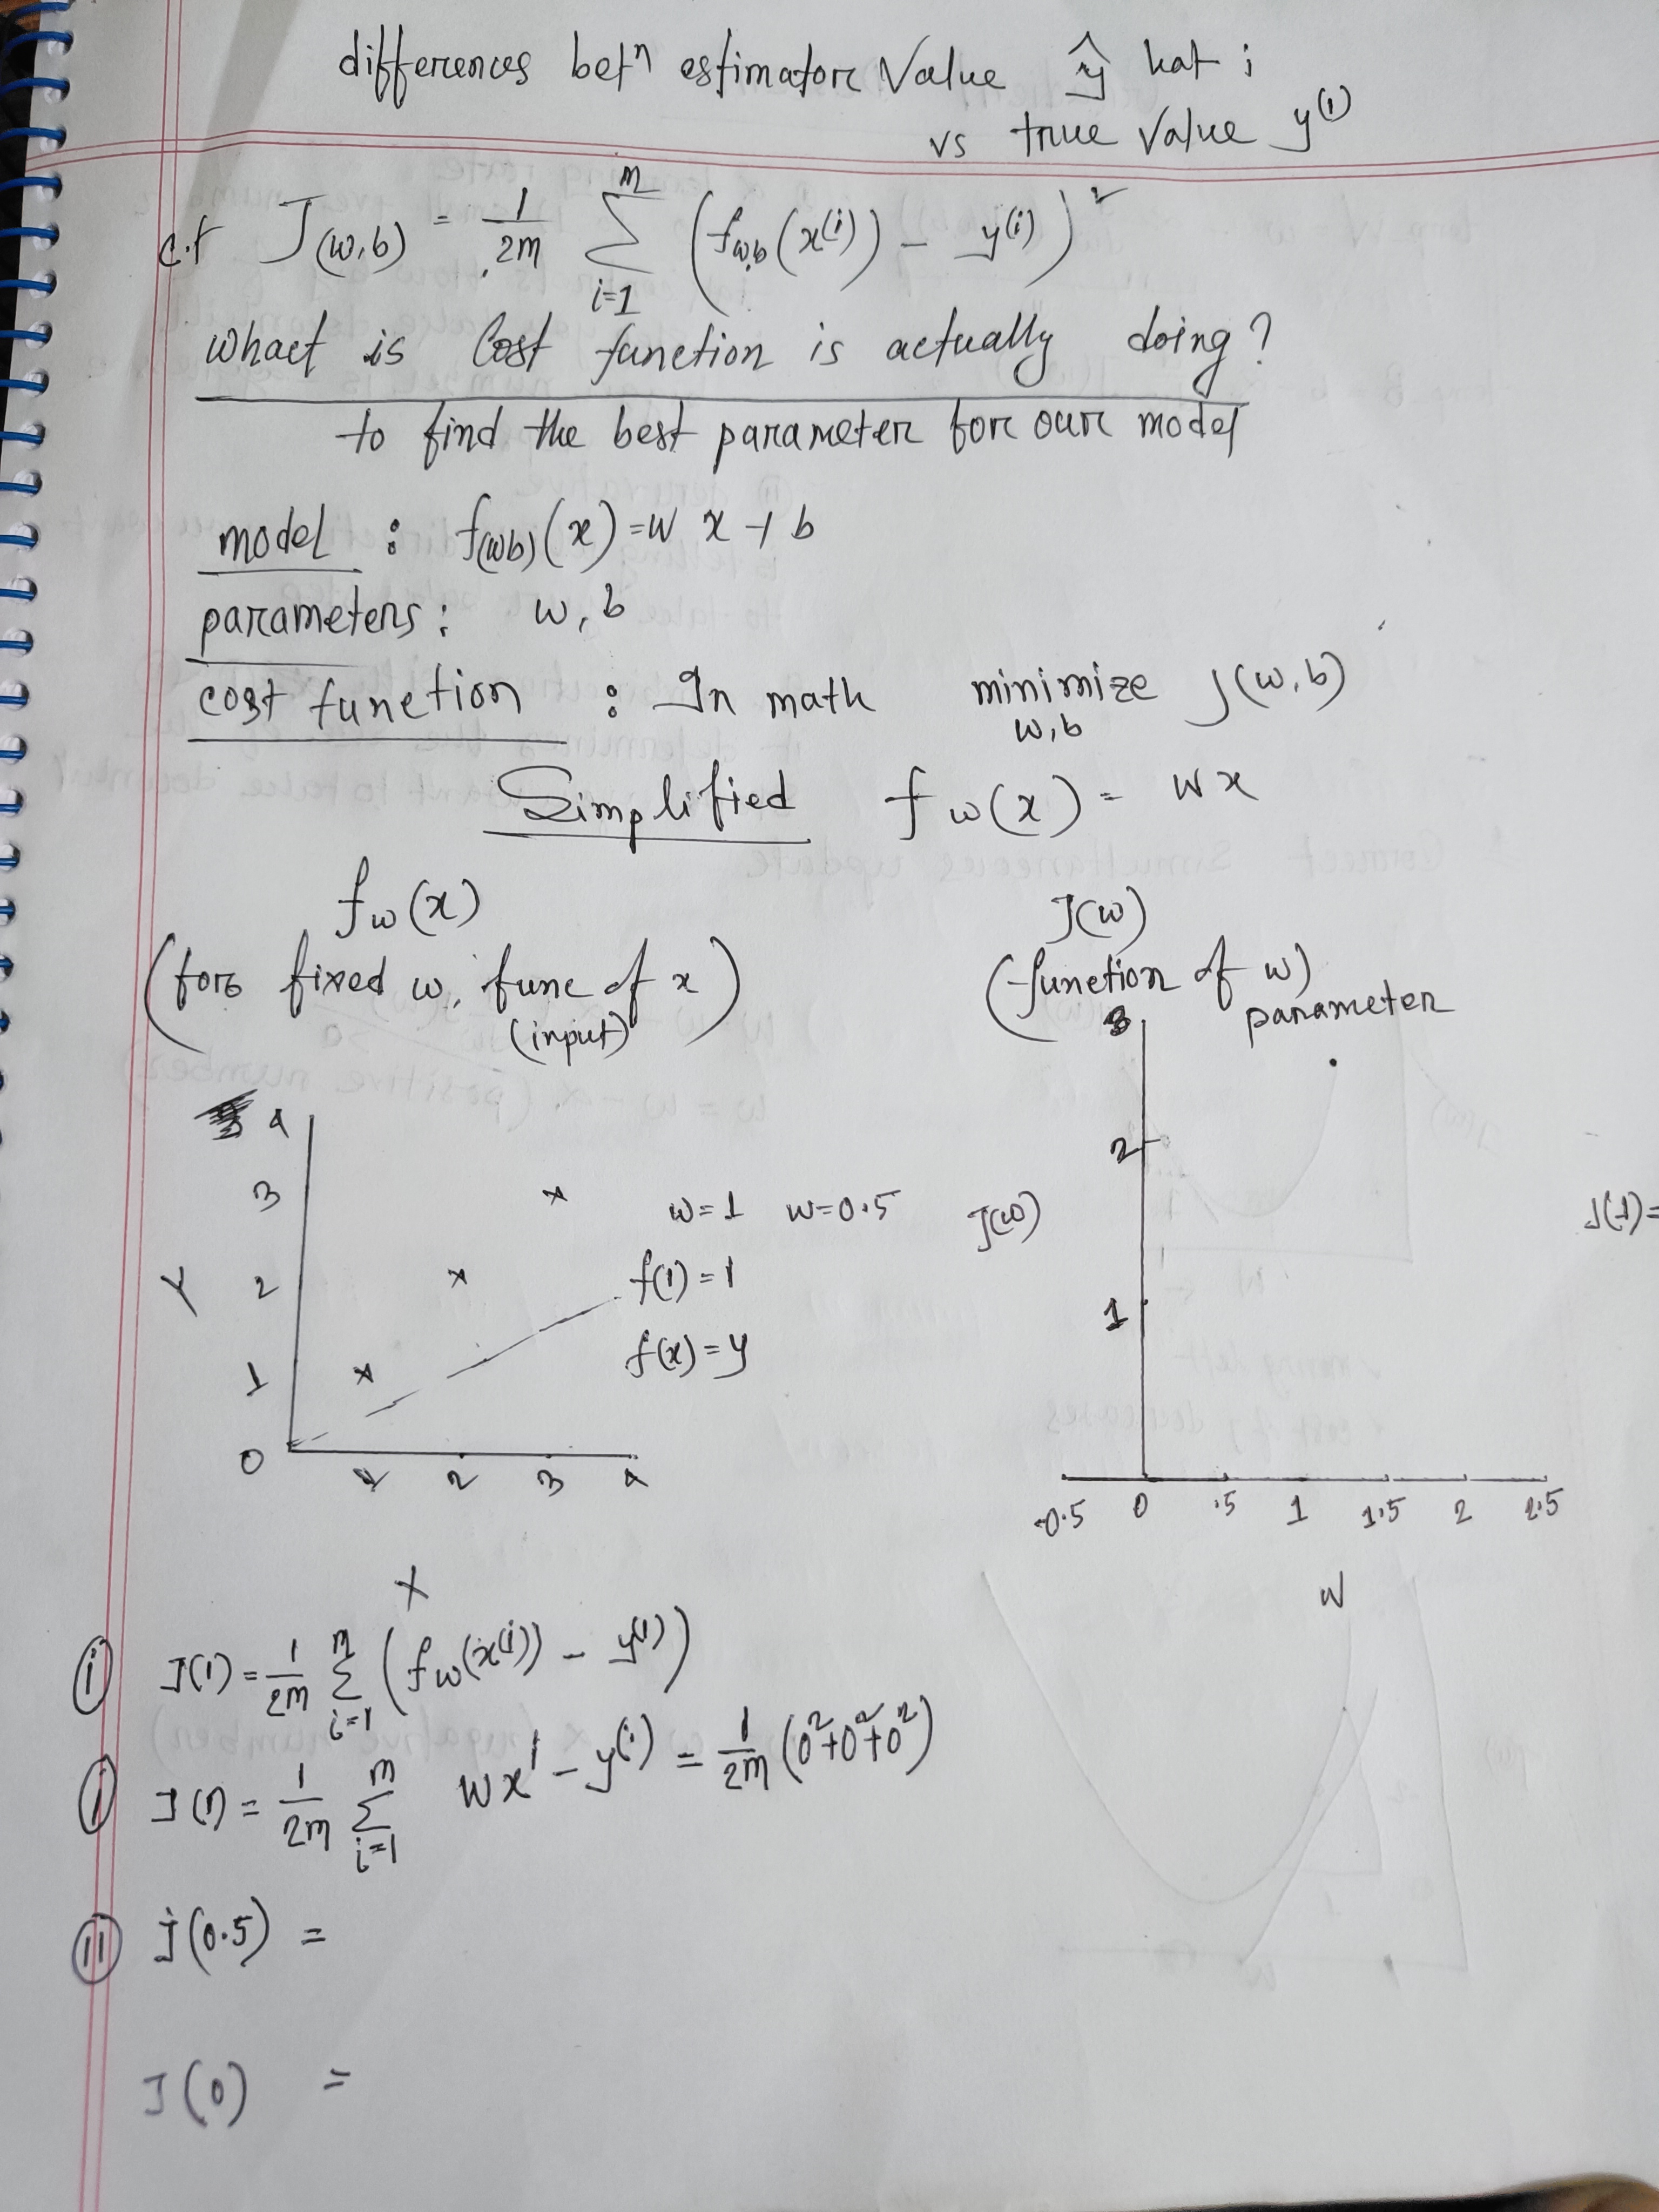 differences betn estimator Value ŷ hat i
vs true Value y^(i)
c.f J(w,b) = 1/2m Σ_{i=1}^{m} (f_{w,b}(x^(i)) - y^(i))^2
whact is Cost function is actually doing?
to find the best parameter for our model
model : f(wb)(x) = w x + b
parameters : w, b
cost function : In math minimize J(w,b)
w,b
Simplified f_w(x) = wx
f_w(x)
(for fixed w, func of x)
(input)
J(w)
(function of w)
parameter
4
3
2
1
0
Y
1 2 3 4
X
w=1 w=0.5
f(1) = 1
f(x) = y
3
2
1
J(w)
-0.5 0 .5 1 1.5 2 2.5
W
J(1)=
(i) J(1) = 1/2m Σ_{i=1}^{m} (f_w(x^(i)) - y^(i))
(i) J(1) = 1/2m Σ_{i=1}^{m} wx^i - y^(i) = 1/2m (0^2+0^2+0^2)
(ii) J(0.5) =
J(0) =